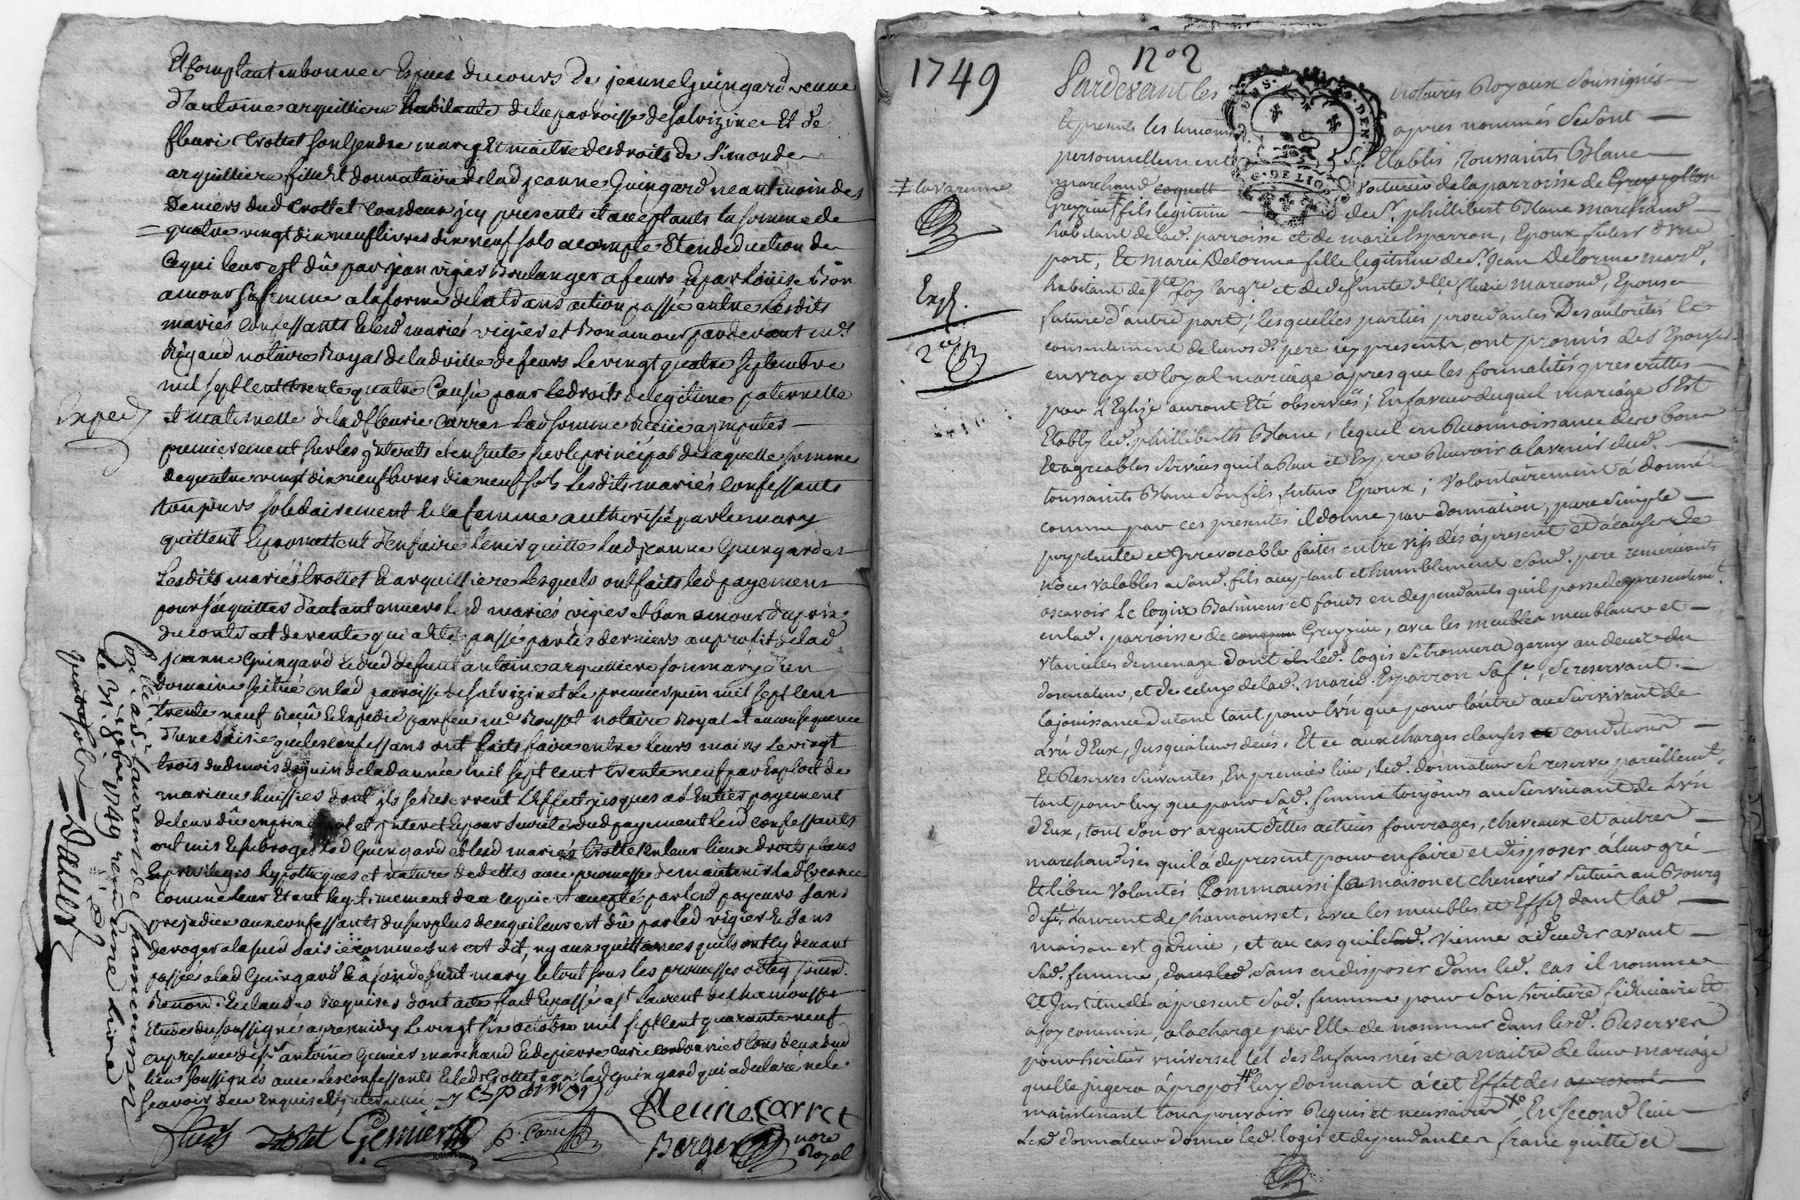 Et Comptant en bonnes Espices du cours de jeanne Guingard veuve
d'antoine arquilliere habitante de la parroisse de salvizinet Et de
fleuri Crottet son Gendre mary Et maitre des droits de Simonde
arquilliere fille Et donnataire de lad jeanne Guingard neantmoin des
Deniers dud Crottet Cordeur icy presents et acceptants la somme de
quatre vingt dix neuf livres dix neuf sols a compte Et en deduction de
Ce qui leur est dû par jean vigier Boulanger a feurs Et par Louise Bon
amour sa femme a la forme de la transaction passée entre lesdits
mariés Confessants Et led mariés vigier et Bonamour pardevant me
Régaud notaire Royal de lad ville de feurs le vingt quatre septembre
mil sept Cent trente quatre Causée pour les droits de legitime paternelle
Et maternelle de lad fleurie Carret
premierement sur les interets et ensuite sur le principal de laquelle somme
de quatre vingt dix neuf livres dix neuf sols Lesdits mariés Confessants
toujours solidairement Et la femme authorisée par le mary
quittent Et promettent d'en faire tenir quitte lad jeanne Guingard et
Lesdits mariés Crottet Et arquilliere lesquels ont faits led payement
pour s'acquitter d'autant envers lesd mariés vigier et bon amour du prix
du contrat de vente qui a été passé par les derniers au profit de lad
jeanne Guingard Et dud defunt antoine arquilliere son mary d'un
Domaine scitué en lad parroisse de salvizinet Le premier juin mil sept Cent
trente neuf Reçu Et Expedié par feu me Rousset notaire Royal Et en consequence
d'une saisie que les confessans ont faits faire entre leurs mains Le vingt
trois dud mois de juin de lad année mil sept cent trente neuf par Exploit de
mariau huissier dont ils se reservent L'Effet jusques a Entier payement
de leur dû en principal et interet Et pour sureté dud payement Lesd confessants
ont mis Et subrogé lad Guingard et lesd mariés Crottet en leur lieu droits places
Et privileges hypotheques et nature de dettes avec promesse de maintenir lad Creance
Comme leur Etant legitimement deue ce qui est accepté par lesd payeurs sans
prejudice aux confessants du surplus de ce qui leur est dû par led vigier Et sans
deroger a la sud saisie comme sus est dit, ny aux quittances qu'ils ont cy devant
passées a lad Guingard Et a son defunt mary le tout sous les promesses oblig soum
Renon. Et clauses Requises dont acte fait Et passé a St Laurent de Chamousset
Etude du soussigné apres midy Le vingt six octobre mil sept Cent quarante neuf
en presence de sr antoine Genier marchand Et de pierre Carie Cordonnier tous deux dud
lieu soussignés avec Les confessants Et led Crottet non lad Guingard qui a declaré ne le
scavoir de ce Enquise Et interpellée
Fleurie Carret
Genier P. Carie
Berger nore
Royal
Exped
Con.lle a St laurent de Chamousset
le 31 8bre 1749 reçu une livre
quatre sols
Dallet
1749
N° 2
Pardevant les notaires Royaux Soussignés
Et presents les temoins apres nommés se sont
personnellement Etablis, toussaints Blanc
marchand voiturier de la parroisse de
Grezzieu fils legitime de sr. phillibert Blanc marchand
la varenne
habitant de lad. parroisse et de marie Esparron, Epoux futur d'une
part, Et marie Delorme fille legitime de sr. Jean Delorme march.
habitant de Ste foy Largre et de defunte delle fleurie marcoud, Epouse
future d'autre part; lesquelles parties procedantes Des autorités Et
consentement de leursd. pere icy presents ont promis de s'Epouser
en vray et loyal mariage apres que les formalités prescrittes
par L'Eglise auront Eté observées; En faveur duquel mariage s'Est
Etably led. phillibert Blanc, lequel en Reconnoissance des bons
Et agreables services qu'il a Reçu et Espere Recevoir a l'avenir dud.
toussaints Blanc son fils, futur Epoux; Volontairement a donné
comme par ces presentes il donne par donnation, pure simple
perpetuelle et irrevocable faites entre vifs dés à present et à cause de
nôces valables a sond. fils acceptant et humblement sond. pere remerciant
ascavoir Le logis Batimens et fonds en dependants qu'il possede presentemt.
en lad. parroisse de Grezzieu, avec les meubles meublants et
utanciles de menage dont led. logis se trouvera garny au deces du
donnateur, et de celuy de lad. marie Esparron sa fe., se reservant
la jouissance du tout tant pour luy que pour l'autre au survivant de
L'un d'Eux, jusqu'a leurs deces, Et ce aux charges clauses conditions
Et Reserves suivantes, En premier lieu, Led. donnateur se reserve pareillemt.
tant pour luy que pour sad. femme toujours au survivant de L'un
d'Eux, tout son or argent dettes actives fourrages, chevaux et autres
marchandises qu'il a de present pour en faire et disposer à leur gré
Et libre volontés Comm'aussi sa maison et cheneviere scituée au Bourg
de St. Laurent de Chamousset, avec les meubles et Effets dont lad.
maison est garnie, et au cas qu'il vienne a deceder avant
sad. femme, sans en disposer dans led. cas il nomme
Et Institue dés à present sad. femme pour son heritiere fiduciaire et
a foy commise, a la charge par Elle de nommer dans lesd. Reserves
pour heritier universel tel des Enfans nés et a naitre de leur mariage
quelle jugera à propos luy donnant à cet Effet des
maintenant tous pouvoirs Requis et necessaires En second lieu
Led. donnateur donne led. logis et dependantes franc quitte et
Exp.